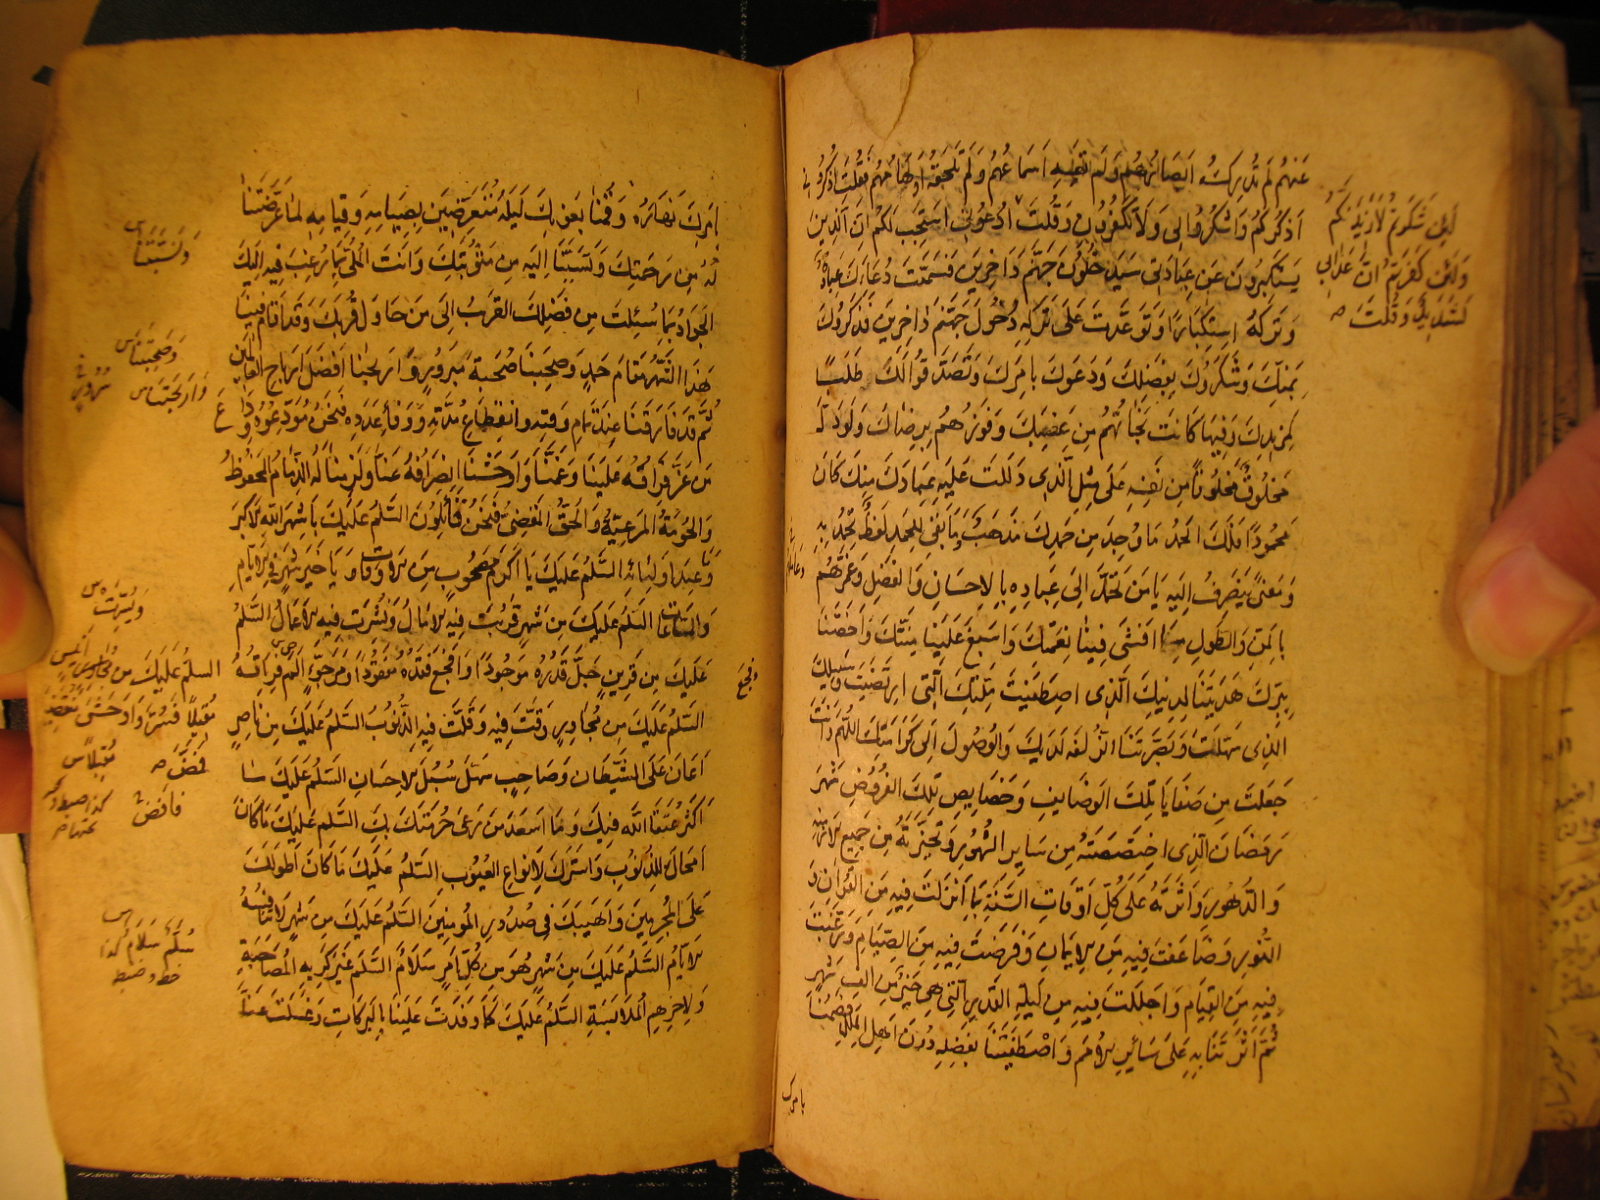 عَنْهُمْ لَمْ تُدْرِكْهُ اَبْصَارُهُمْ وَلَمْ تَعِهِ اَسْمَاعُهُمْ وَلَمْ تَلْحَقْهُ اَوْهَامُهُمْ فَقُلْتَ اذْكُرُونِي
اَذْكُرْكُمْ وَاشْكُرُوا لِي وَلَا تَكْفُرُونِ وَقُلْتَ ادْعُونِي اَسْتَجِبْ لَكُمْ اِنَّ الَّذِينَ
يَسْتَكْبِرُونَ عَنْ عِبَادَتِي سَيَدْخُلُونَ جَهَنَّمَ دَاخِرِينَ فَسَمَّيْتَ دُعَاءَكَ عِبَادَةً
وَتَرْكَهُ اسْتِكْبَارًا وَتَوَعَّدْتَ عَلَى تَرْكِهِ دُخُولَ جَهَنَّمَ دَاخِرِينَ فَذَكَرُوكَ
بِمَنِّكَ وَشَكَرُوكَ بِفَضْلِكَ وَدَعَوْكَ بِاَمْرِكَ وَتَصَدَّقُوا لَكَ طَلَبًا
لِمَزِيدِكَ وَفِيهَا كَانَتْ نَجَاتُهُمْ مِنْ غَضَبِكَ وَفَوْزُهُمْ بِرِضَاكَ وَلَوْ دَلَّ
مَخْلُوقٌ مَخْلُوقًا مِنْ نَفْسِهِ عَلَى مِثْلِ الَّذِي دَلَلْتَ عَلَيْهِ عِبَادَكَ مِنْكَ كَانَ
مَحْمُودًا فَلَكَ الْحَمْدُ مَا وُجِدَ مِنْ حَمْدِكَ مَذْهَبٌ وَمَا بَقِيَ لِلْحَمْدِ لَفْظٌ تُحْمَدُ بِهِ
وَمَعْنًى يَنْصَرِفُ اِلَيْهِ يَا مَنْ تَحَمَّدَ اِلَى عِبَادِهِ بِالْاِحْسَانِ وَالْفَضْلِ وَغَمَرَهُمْ
بِالْمَنِّ وَالطَّوْلِ مَا اَفْشَى فِينَا نِعْمَتَكَ وَاَسْبَغَ عَلَيْنَا مِنَّتَكَ وَاَخَصَّنَا
بِبِرِّكَ هَدَيْتَنَا لِدِينِكَ الَّذِي اصْطَفَيْتَ وَمِلَّتِكَ الَّتِي ارْتَضَيْتَ وَسَبِيلِكَ
الَّذِي سَهَّلْتَ وَبَصَّرْتَنَا الزُّلْفَةَ لَدَيْكَ وَالْوُصُولَ اِلَى كَرَامَتِكَ اللّٰهُمَّ وَاَنْتَ
جَعَلْتَ مِنْ صَفَايَا تِلْكَ الْوَظَايِفِ وَخَصَايِصِ تِلْكَ الْفُرُوضِ شَهْرَ
رَمَضَانَ الَّذِي اخْتَصَصْتَهُ مِنْ سَايِرِ الشُّهُورِ وَتَخَيَّرْتَهُ مِنْ جَمِيعِ الْاَزْمِنَةِ
وَالدُّهُورِ وَآثَرْتَهُ عَلَى كُلِّ اَوْقَاتِ السَّنَةِ بِمَا اَنْزَلْتَ فِيهِ مِنَ الْقُرْآنِ وَ
النُّورِ وَضَاعَفْتَ فِيهِ مِنَ الْاِيمَانِ وَفَرَضْتَ فِيهِ مِنَ الصِّيَامِ وَرَغَّبْتَ
فِيهِ مِنَ الْقِيَامِ وَاَجْلَلْتَ فِيهِ مِنْ لَيْلَةِ الْقَدْرِ الَّتِي هِيَ خَيْرٌ مِنْ اَلْفِ شَهْرٍ
ثُمَّ آثَرْتَنَا بِهِ عَلَى سَائِرِ الْاُمَمِ وَاصْطَفَيْتَنَا بِفَضْلِهِ دُونَ اَهْلِ الْمِلَلِ فَصُمْنَا
بامرك
لَئِنْ شَكَرْتُمْ لَاَزِيدَنَّكُمْ
وَلَئِنْ كَفَرْتُمْ اِنَّ عَذَابِي
لَشَدِيدٌ وَقُلْتَ صح
بِاَمْرِكَ نَهَارَهُ وَقُمْنَا بِعَوْنِكَ لَيْلَهُ مُتَعَرِّضِينَ بِصِيَامِهِ وَقِيَامِهِ لِمَا عَرَّضْتَنَا
لَهُ مِنْ رَحْمَتِكَ وَتَسَبَّبْنَا اِلَيْهِ مِنْ مَثُوبَتِكَ وَاَنْتَ الْمَلِيُّ بِمَا رُغِبَ فِيهِ اِلَيْكَ
الْجَوَادُ بِمَا سُئِلْتَ مِنْ فَضْلِكَ الْقَرِيبُ اِلَى مَنْ حَاوَلَ قُرْبَكَ وَقَدْ اَقَامَ فِينَا
هٰذَا الشَّهْرُ مَقَامَ حَمْدٍ وَصَحِبَنَا صُحْبَةَ مَبْرُورٍ وَاَرْبَحَنَا اَفْضَلَ اَرْبَاحِ الْعَالَمِينَ
ثُمَّ قَدْ فَارَقَنَا عِنْدَ تَمَامِ وَقْتِهِ وَانْقِطَاعِ مُدَّتِهِ وَوَفَاءِ عَدَدِهِ فَنَحْنُ مُوَدِّعُوهُ وَدَاعَ
مَنْ عَزَّ فِرَاقُهُ عَلَيْنَا وَغَمَّنَا وَاَوْحَشَنَا انْصِرَافُهُ عَنَّا وَلَزِمَنَا لَهُ الذِّمَامُ الْمَحْفُوظُ
وَالْحُرْمَةُ الْمَرْعِيَّةُ وَالْحَقُّ الْمَقْضِيُّ فَنَحْنُ قَائِلُونَ السَّلَمُ عَلَيْكَ يَا شَهْرَ اللّٰهِ الْاَكْبَرَ
وَيَا عِيدَ اَوْلِيَائِهِ السَّلَمُ عَلَيْكَ يَا اَكْرَمَ مَصْحُوبٍ مِنَ الْاَوْقَاتِ وَيَا خَيْرَ شَهْرٍ فِي الْاَيَّامِ
وَالسَّاعَاتِ السَّلَمُ عَلَيْكَ مِنْ شَهْرٍ قَرُبَتْ فِيهِ الْآمَالُ وَنُشِرَتْ فِيهِ الْاَعْمَالُ السَّلَمُ
عَلَيْكَ مِنْ قَرِينٍ جَلَّ قَدْرُهُ مَوْجُودًا وَاَفْجَعَ فَقْدُهُ مَفْقُودًا وَمَرْجُوٍّ اٰلَمَ فِرَاقُهُ
السَّلَمُ عَلَيْكَ مِنْ مُجَاوِرٍ رَقَّتْ فِيهِ وَقَلَّتْ فِيهِ الذُّنُوبُ السَّلَمُ عَلَيْكَ مِنْ نَاصِرٍ
اَعَانَ عَلَى الشَّيْطَانِ وَصَاحِبٍ سَهَّلَ سُبُلَ الْاِحْسَانِ السَّلَمُ عَلَيْكَ مَا
اَكْثَرَ عُتَقَاءَ اللّٰهِ فِيكَ وَمَا اَسْعَدَ مَنْ رَعَى حُرْمَتَكَ بِكَ السَّلَمُ عَلَيْكَ مَا كَانَ
اَمْحَاكَ لِلذُّنُوبِ وَاَسْتَرَكَ لِاَنْوَاعِ الْعُيُوبِ السَّلَمُ عَلَيْكَ مَا كَانَ اَطْوَلَكَ
عَلَى الْمُجْرِمِينَ وَاَهْيَبَكَ فِي صُدُورِ الْمُومِنِينَ السَّلَمُ عَلَيْكَ مِنْ شَهْرٍ لَا تُنَافِسُهُ
الْاَيَّامُ السَّلَمُ عَلَيْكَ مِنْ شَهْرٍ هُوَ مِنْ كُلِّ اَمْرٍ سَلَامٌ السَّلَمُ عَلَيْكَ غَيْرَ كَرِيهِ الْمُصَاحَبَةِ
وَلَا ذَمِيمِ الْمُلَابَسَةِ السَّلَمُ عَلَيْكَ كَمَا وَفَدْتَ عَلَيْنَا بِالْبَرَكَاتِ وَغَسَلْتَ عَنَّا
وفجع
وَصَحِبَنَا س
وَاَرْبَحَنَا س
وَيُسِّرَتْ س
السَّلَمُ عَلَيْكَ مِنْ
مُقْبِلًا فَسَرَّ وَاَوْحَشَ
فَمَضَّ صح
سَلَّمَ سَلَامٌ كذا
خط وضبط